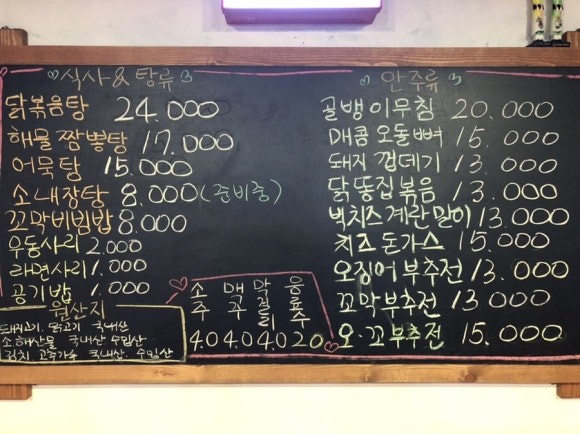 ♡식사 & 탕류♡
닭볶음탕 24.000
해물짬뽕탕 17.000
어묵탕 15.000
소내장탕 8.000(준비중)
꼬막비빔밥 8.000
우동사리 2.000
라면사리 1.000
공기밥 1.000
원산지
돼지고기. 닭고기 국내산
소 해산물 국내산 수입산
김치 고춧가루 국내산. 수입산
소주 매구 막걸리 음료수
4.0 4.0 4.0 2.0
♡ 안주류 ♡
골뱅이무침 20.000
매콤오돌뼈 15.000
돼지껍데기 13.000
닭똥집볶음 13.000
빅치즈계란말이 13.000
치즈돈가스 15.000
오징어부추전 13.000
꼬막부추전 13.000
오.꼬부추전 15.000